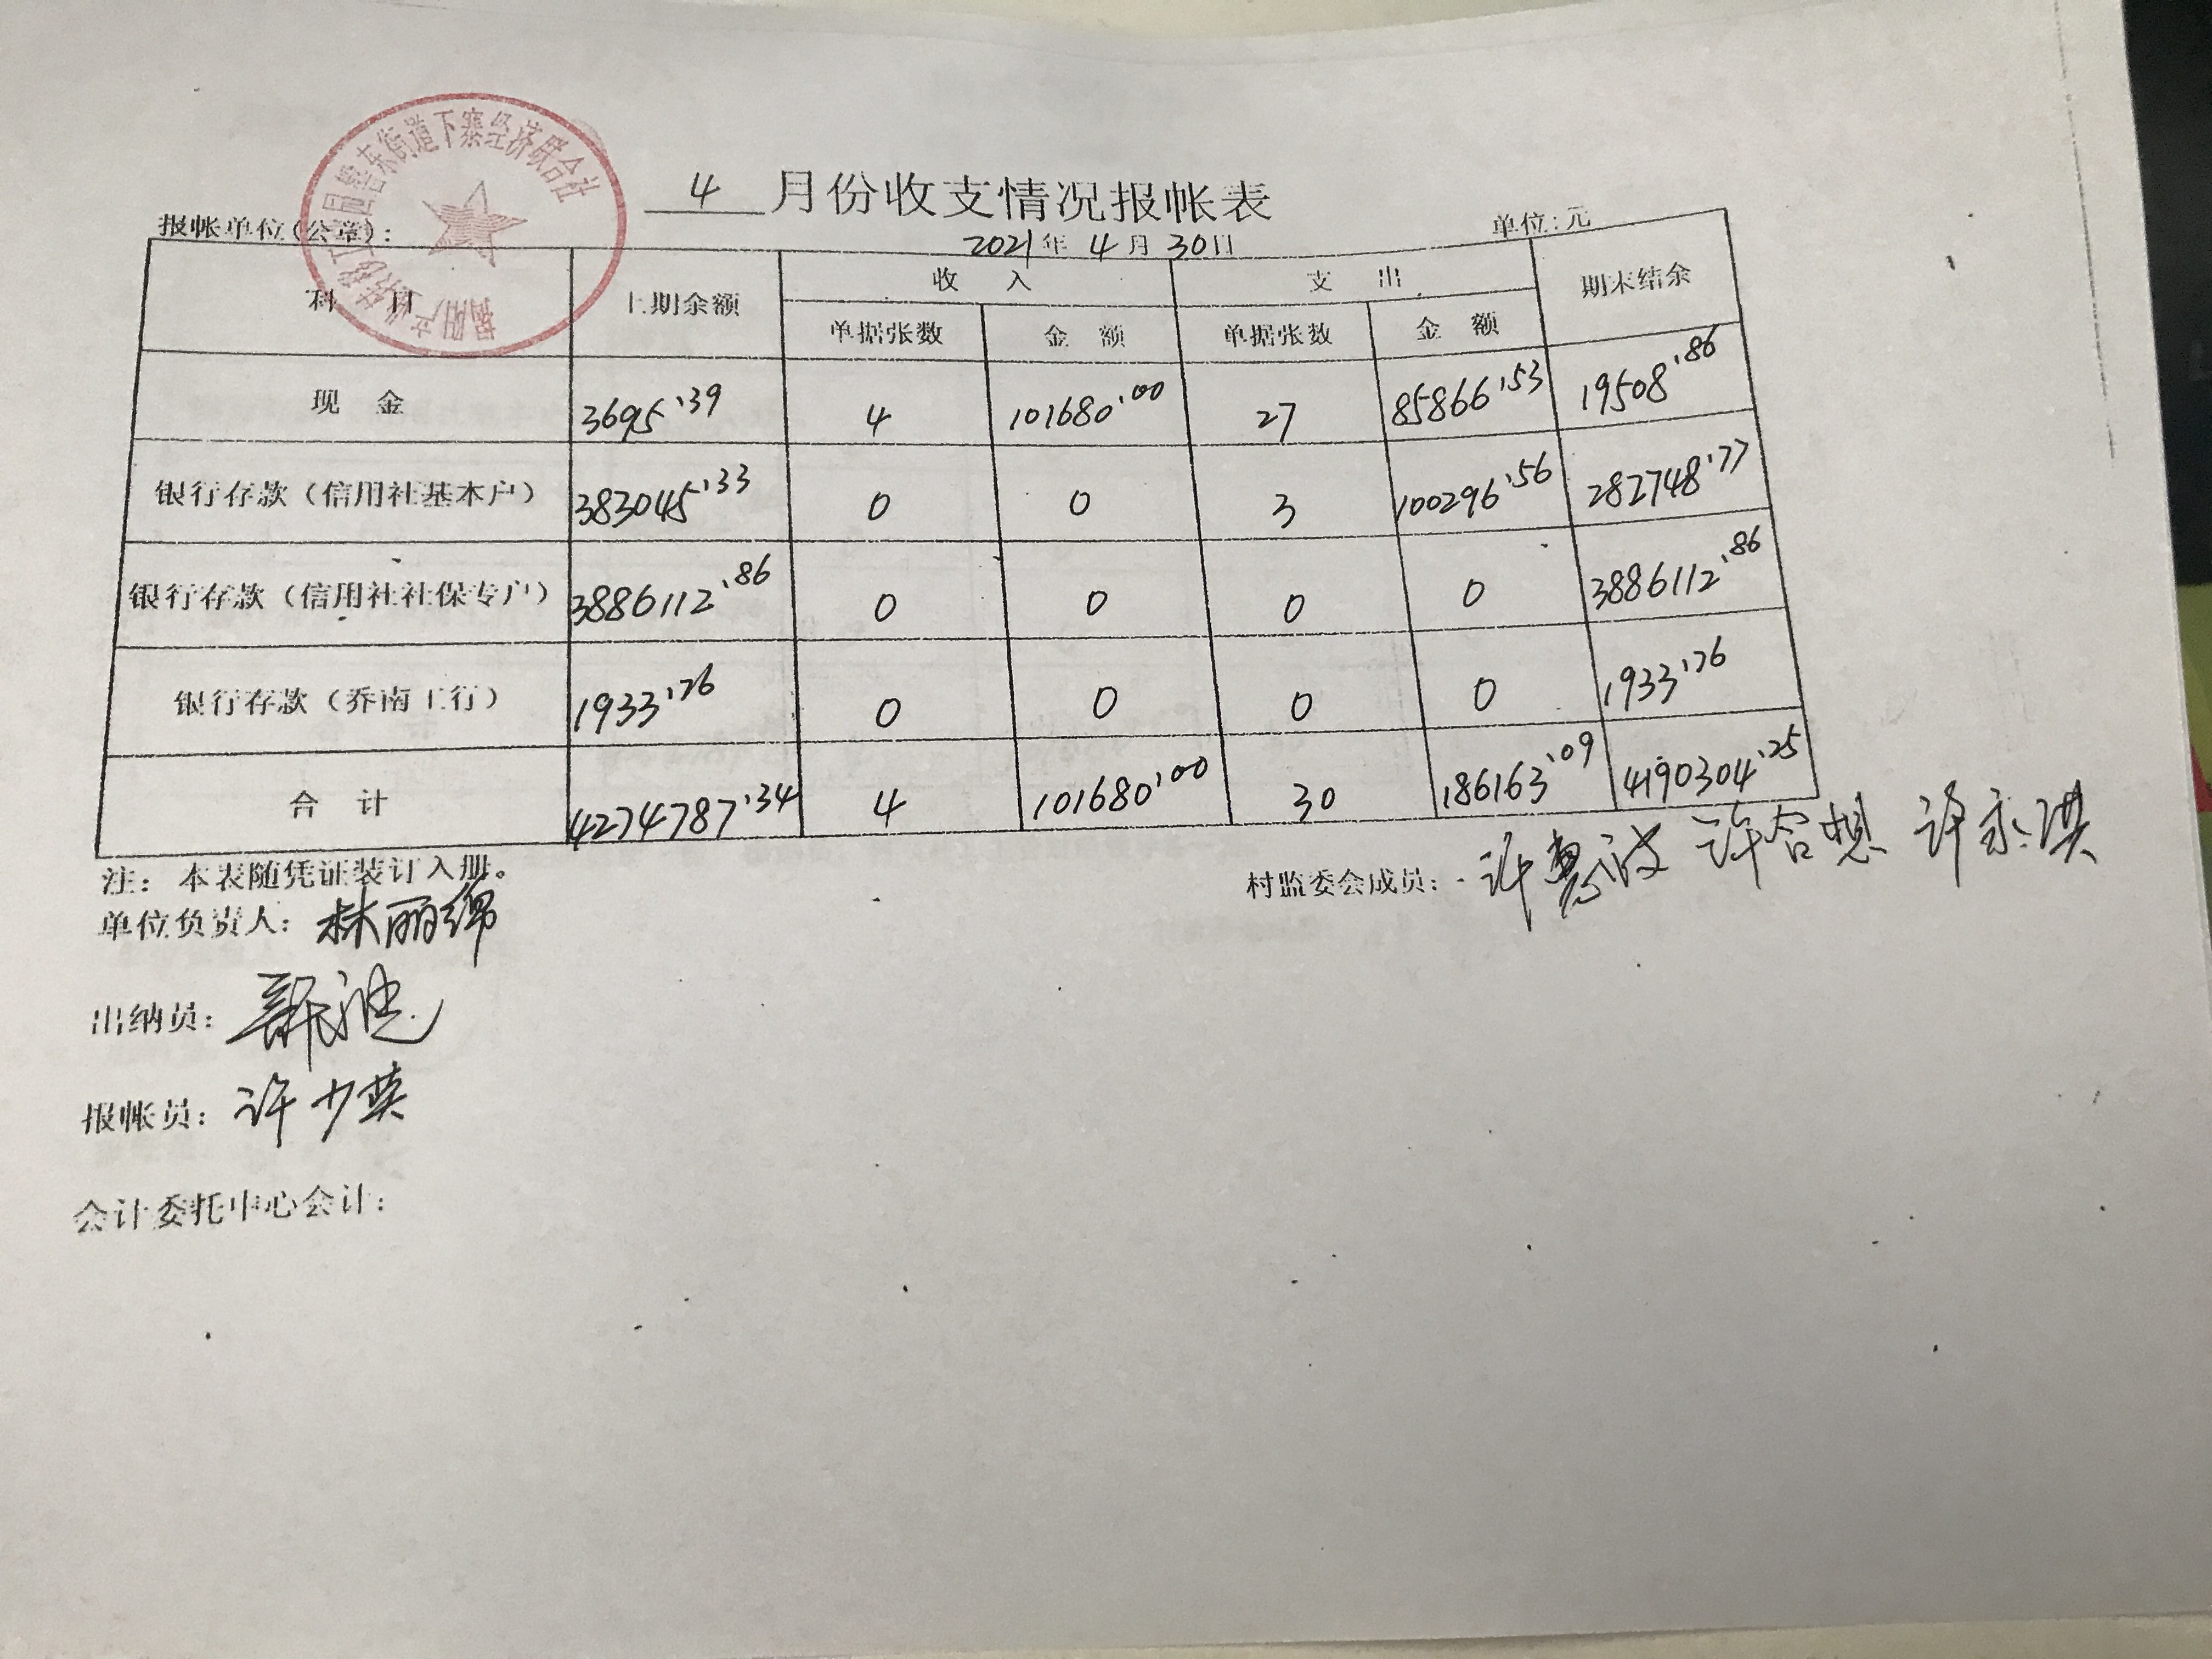 揭阳产业转移工业园磐东街道下寨经济联合社
4月份收支情况报帐表
报帐单位(公章):
2021年 4月 30日
单位:元
科 目 上期余额 收 入 支 出 期末结余
单据张数 金 额 单据张数 金 额
现 金 3695.39 4 101680.00 27 85866.53 19508.86
银行存款（信用社基本户） 383045.33 0 0 3 100296.56 282748.77
银行存款（信用社社保专户） 3886112.86 0 0 0 0 3886112.86
银行存款（乔南工行） 1933.76 0 0 0 0 1933.76
合 计 4274787.34 4 101680.00 30 186163.09 4190304.25
注：本表随凭证装订入册。
村监委会成员： 许 许合想 许永洪
单位负责人：林丽绵
出纳员：
报帐员：许少英
会计委托中心会计：